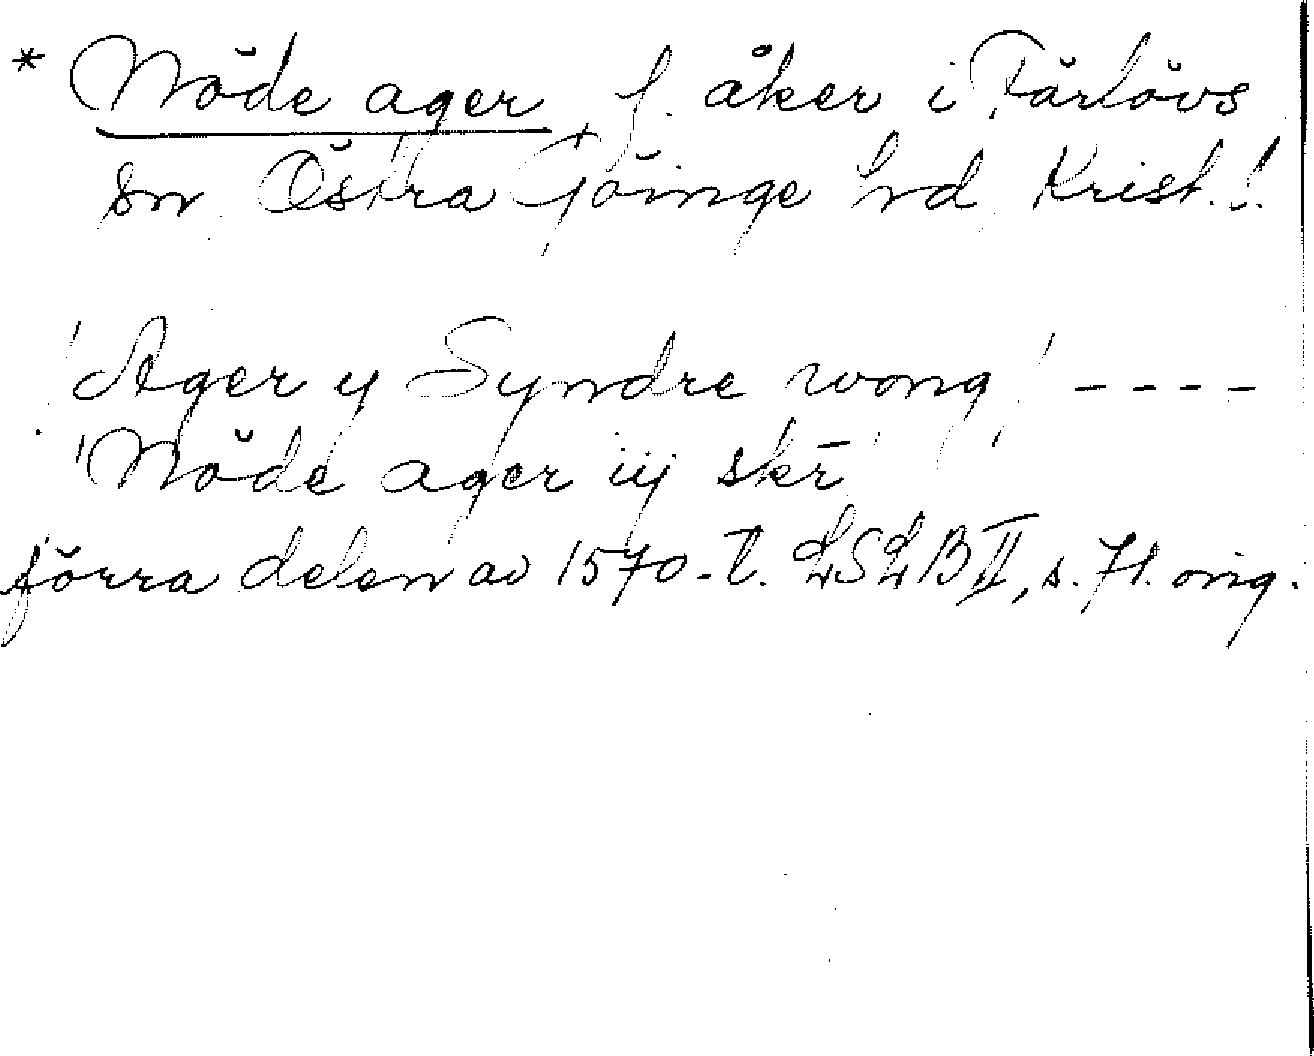 * Nöde ager f. åker i Färlövs
sn Östra Göinge hd Krist. l
'Ager y Syndre wong' ----
'Nöde ager iij skr̄'
förra delen av 1570-t. LSLB II, s. 71. orig.